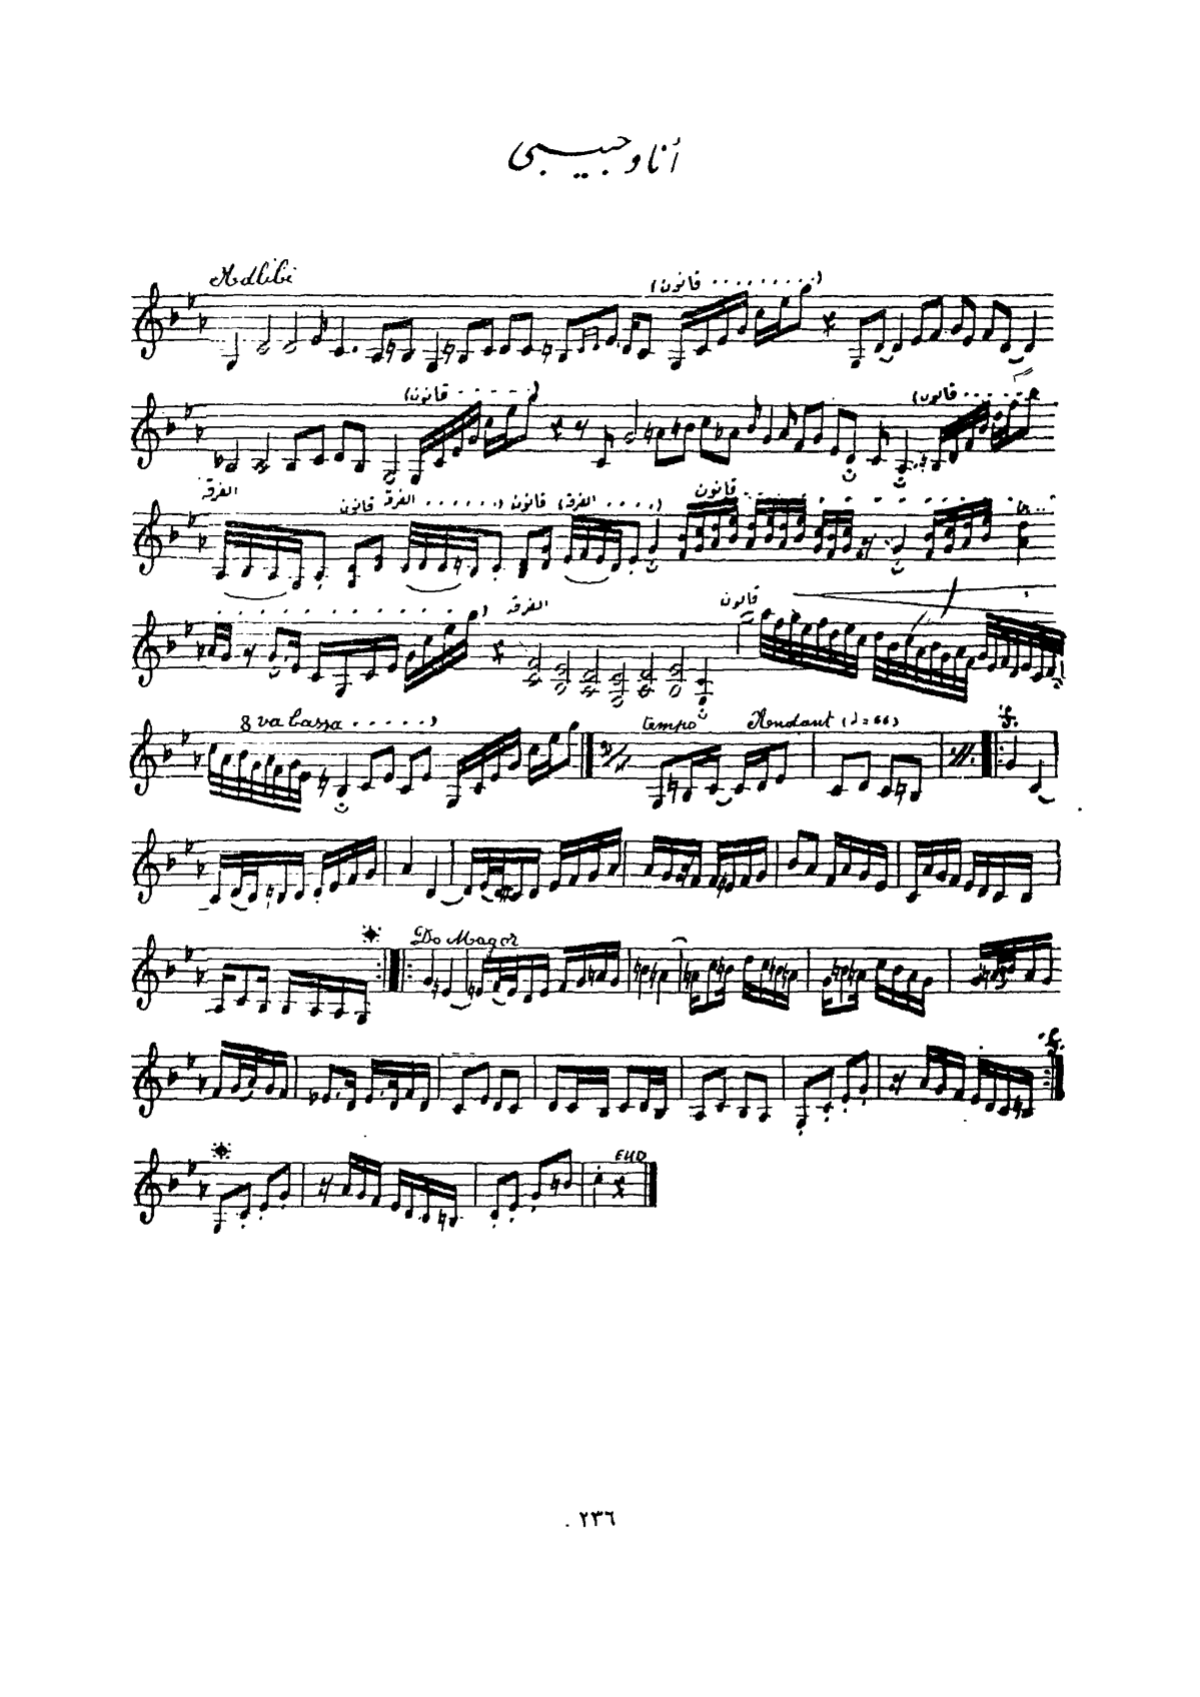 أنا وحبيبي
Adlibi
(قانون ........)
(قانون ......)
(قانون ......)
الفرقة
قانون الفرقة ......) قانون (الفرقة ....) قانون ........
........) الفرقة قانون
8 va bassa .....) tempo Andant (♩=66)
Do Magor
END
٢٣٦ .